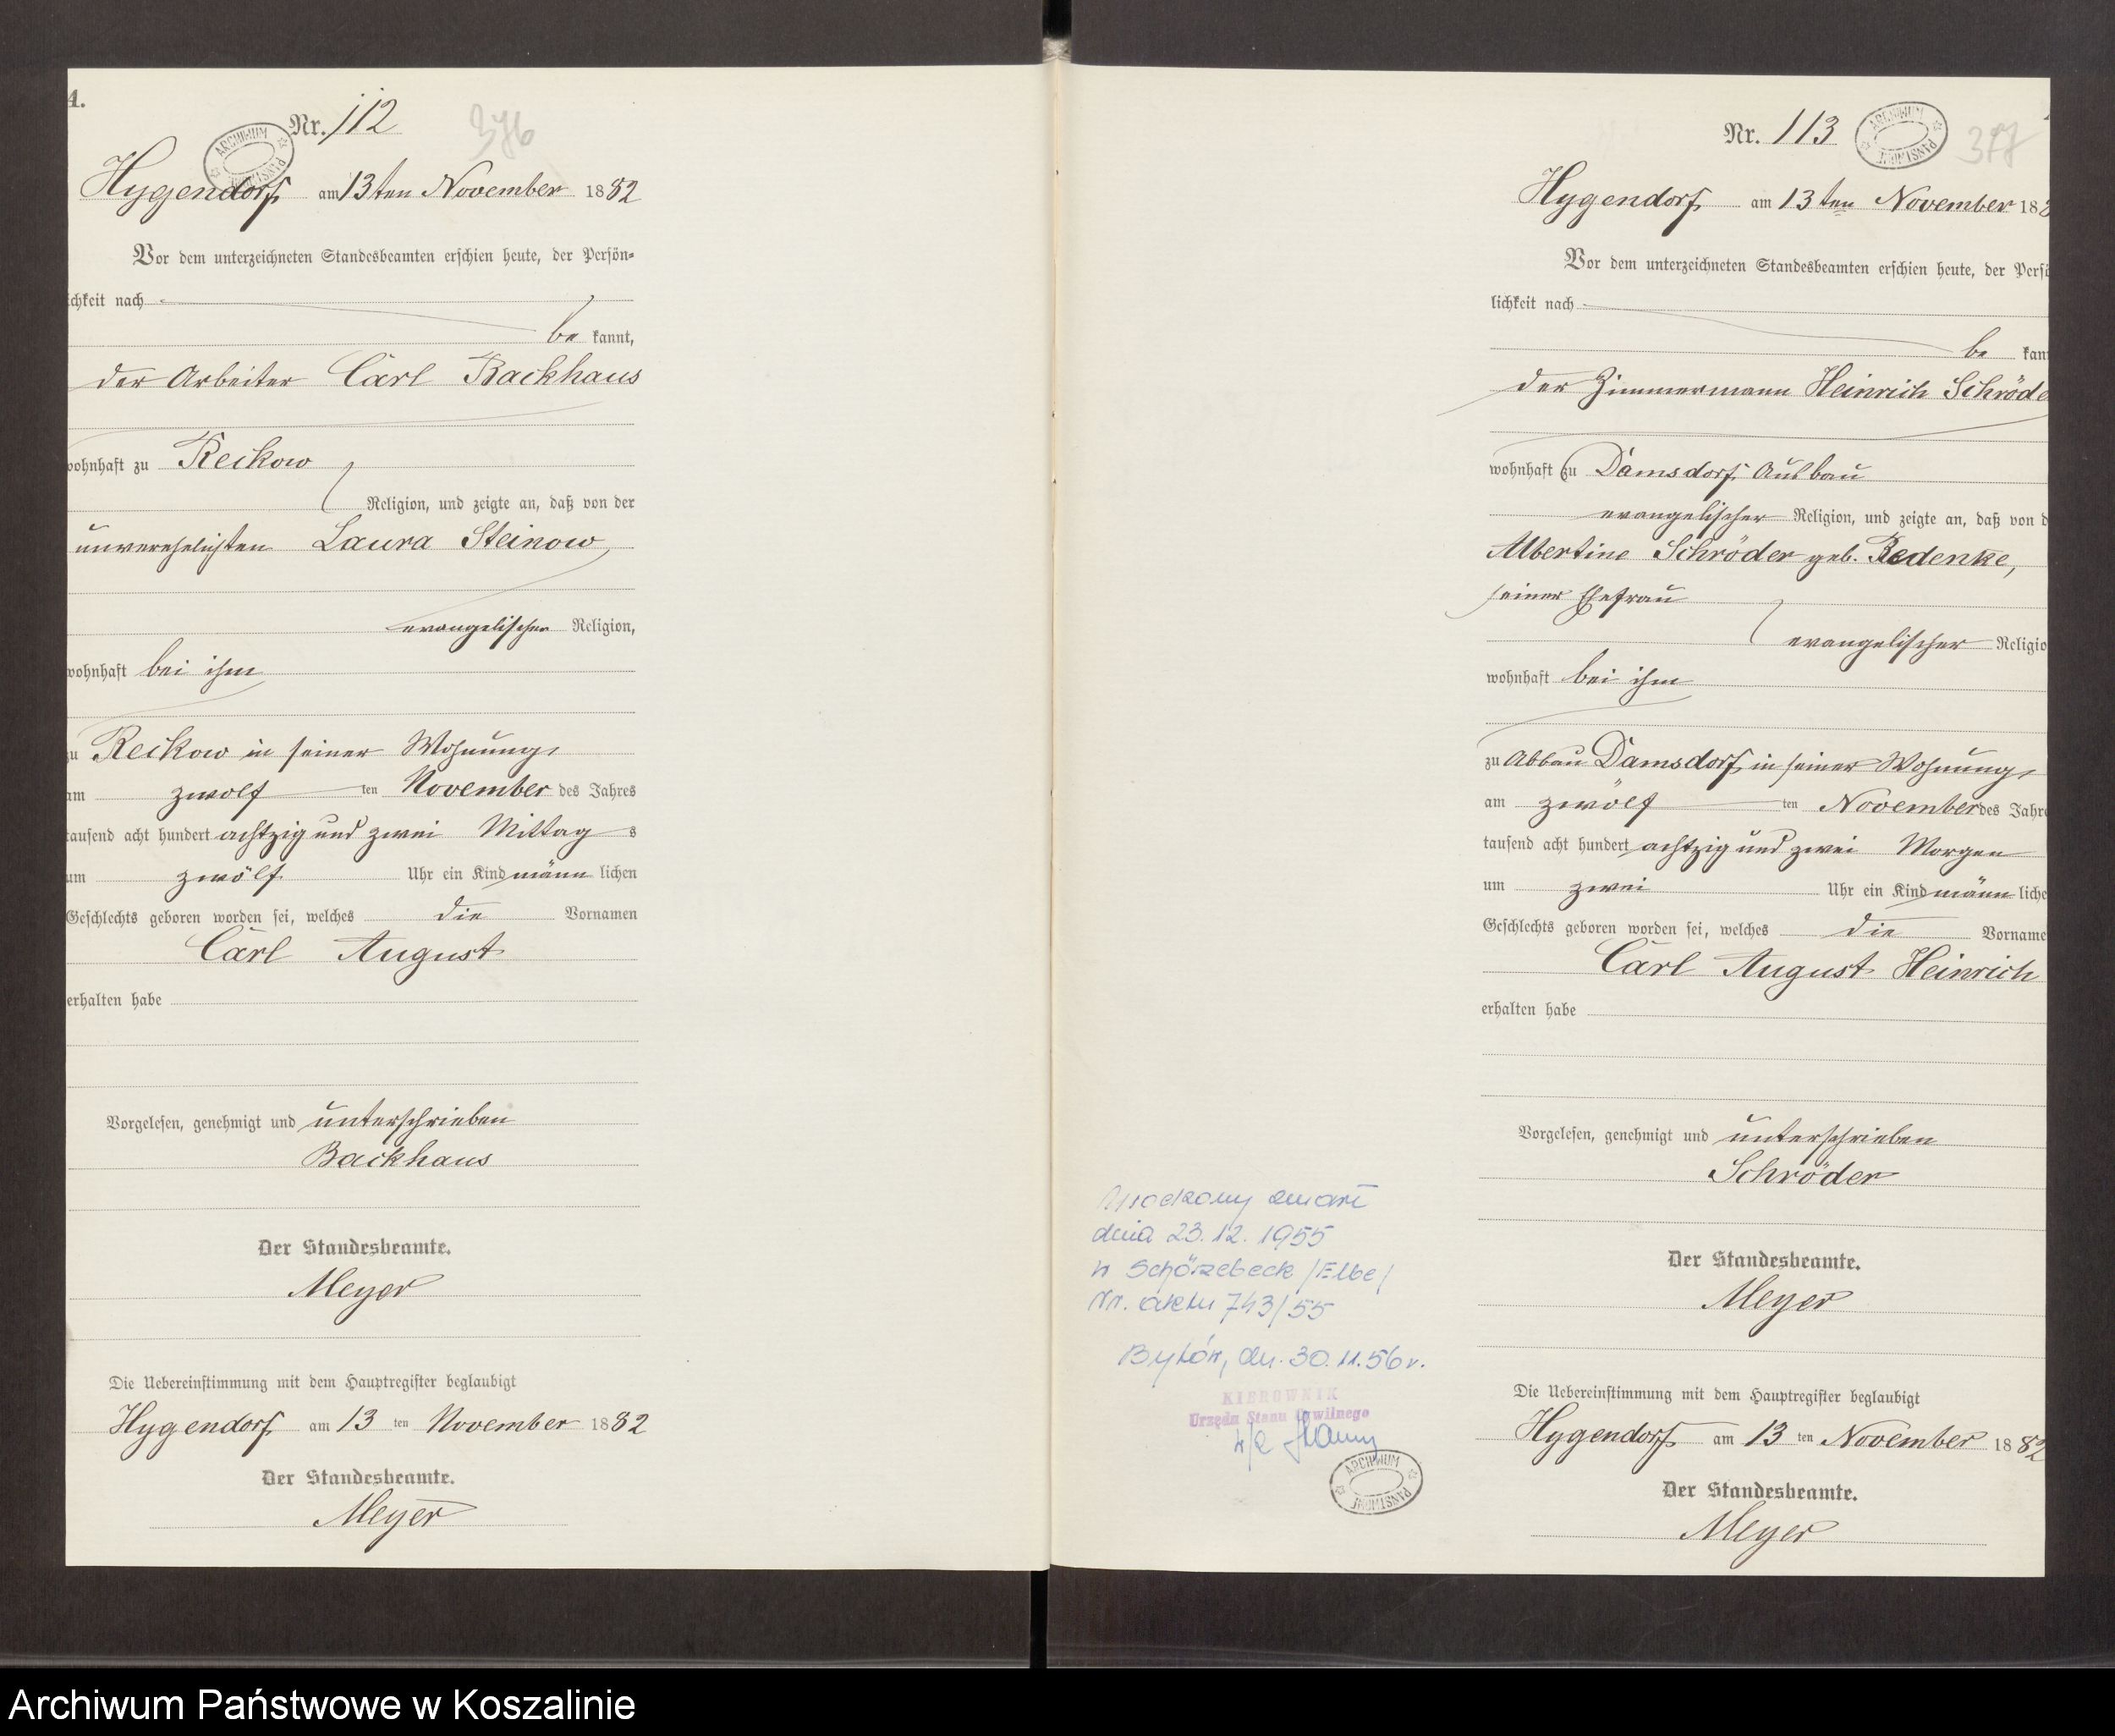 4.
Nr. 112
376
ARCHIWUM PAŃSTWOWE
Hygendorf am 13ten November 1882
Vor dem unterzeichneten Standesbeamten erschien heute, der Persön-
ichkeit nach
be kannt,
der Arbeiter Carl Backhaus
wohnhaft zu Reckow
Religion, und zeigte an, daß von der
unverehelichten Laura Steinow,
evangelischer Religion,
wohnhaft bei ihm
zu Reckow in seiner Wohnung,
am zwölf ten November des Jahres
tausend acht hundert achtzig und zwei Mittag s
um zwölf Uhr ein Kind männ lichen
Geschlechts geboren worden sei, welches die Vornamen
Carl August
erhalten habe
Vorgelesen, genehmigt und unterschrieben
Backhaus
Der Standesbeamte.
Meyer
Die Uebereinstimmung mit dem Hauptregister beglaubigt
Hygendorf am 13 ten November 1882
Der Standesbeamte.
Meyer
Nr. 113
ARCHIWUM PAŃSTWOWE
377
Hygendorf am 13ten November 188
Vor dem unterzeichneten Standesbeamten erschien heute, der Persö
lichkeit nach
be kan
der Zimmermann Heinrich Schröde
wohnhaft zu Damsdorf Ausbau
evangelischer Religion, und zeigte an, daß von d
Albertine Schröder geb. Redenke,
seiner Ehefrau
evangelischer Religio
wohnhaft bei ihm
zu Abbau Damsdorf, in seiner Wohnung,
am zwölf ten November des Jahre
tausend acht hundert achtzig und zwei Morgen
um zwei Uhr ein Kind männ liche
Geschlechts geboren worden sei, welches die Vorname
Carl August Heinrich
erhalten habe
Vorgelesen, genehmigt und unterschrieben
Schröder
Der Standesbeamte.
Meyer
Die Uebereinstimmung mit dem Hauptregister beglaubigt
Hygendorf am 13 ten November 1882
Der Standesbeamte.
Meyer
zmarł
dnia 23.12.1955
w Schönebeck /Elbe/
Nr. aktu 743/55
Bytów, dn. 30.11.56 r.
KIEROWNIK
Urzędu Stanu Cywilnego
ARCHIWUM PAŃSTWOWE
Archiwum Państwowe w Koszalinie